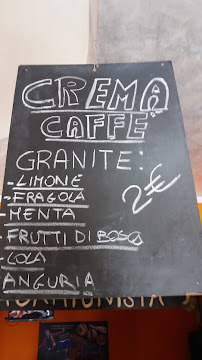 CREMA
CAFFÈ
GRANITE:
-LIMONE
-FRAGOLA
-MENTA
2€
-FRUTTI DI BOSCO
-COLA
ANGURIA